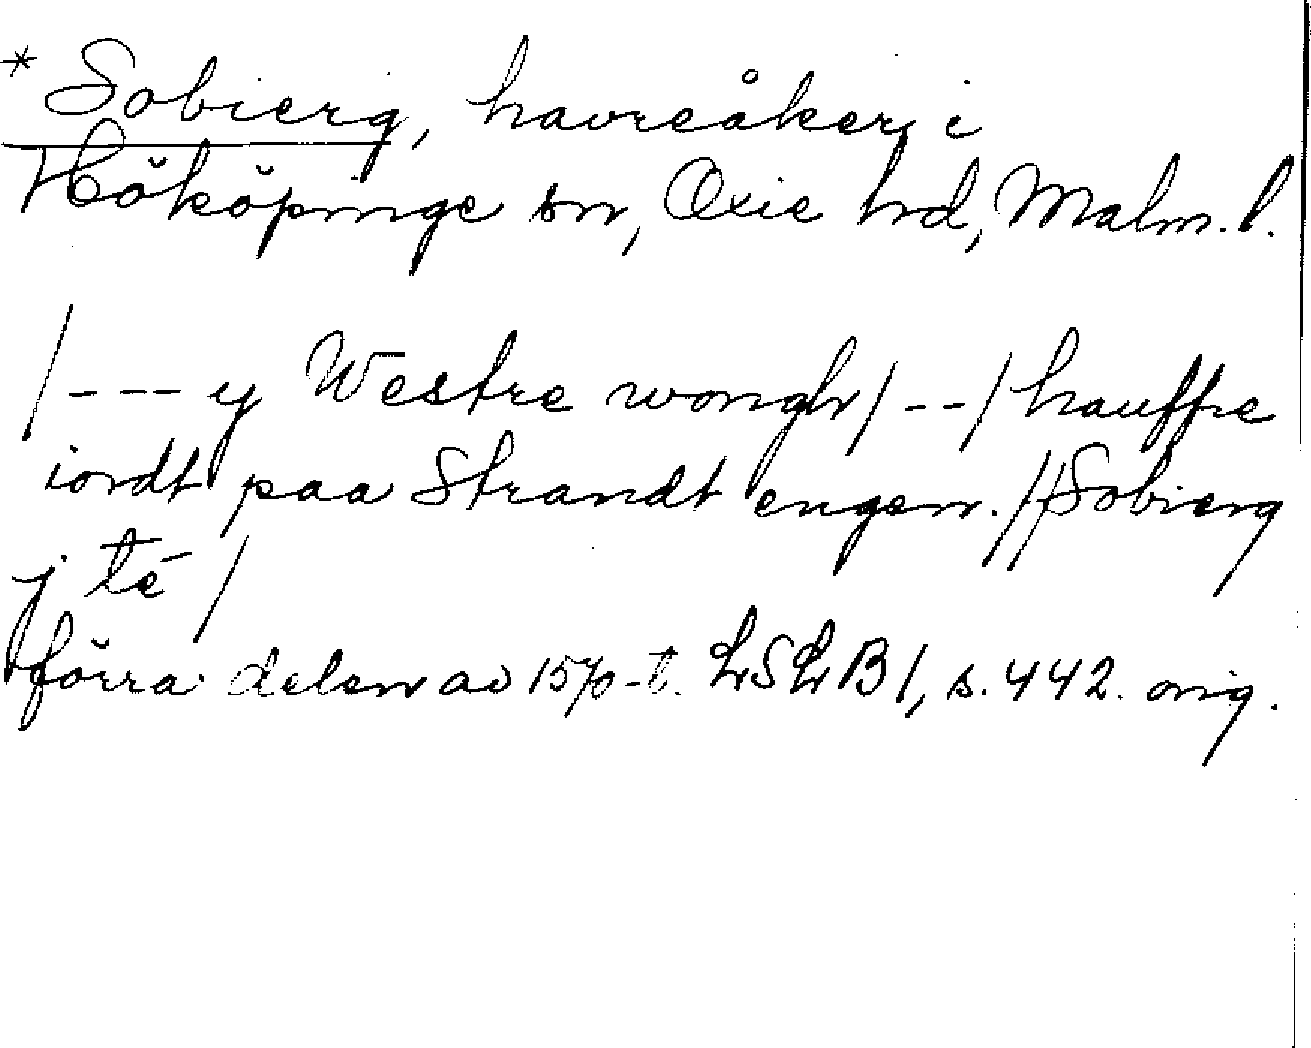 * Sobierg, havreåker i
Hököpinge sn, Oxie hd, Malm. l.
/--- y Westre wongh/--/hauffre
iordt paa Strandt engen.//Sobierg
j té/
förra delen av 1570-t. LSLB1, s. 442. orig.